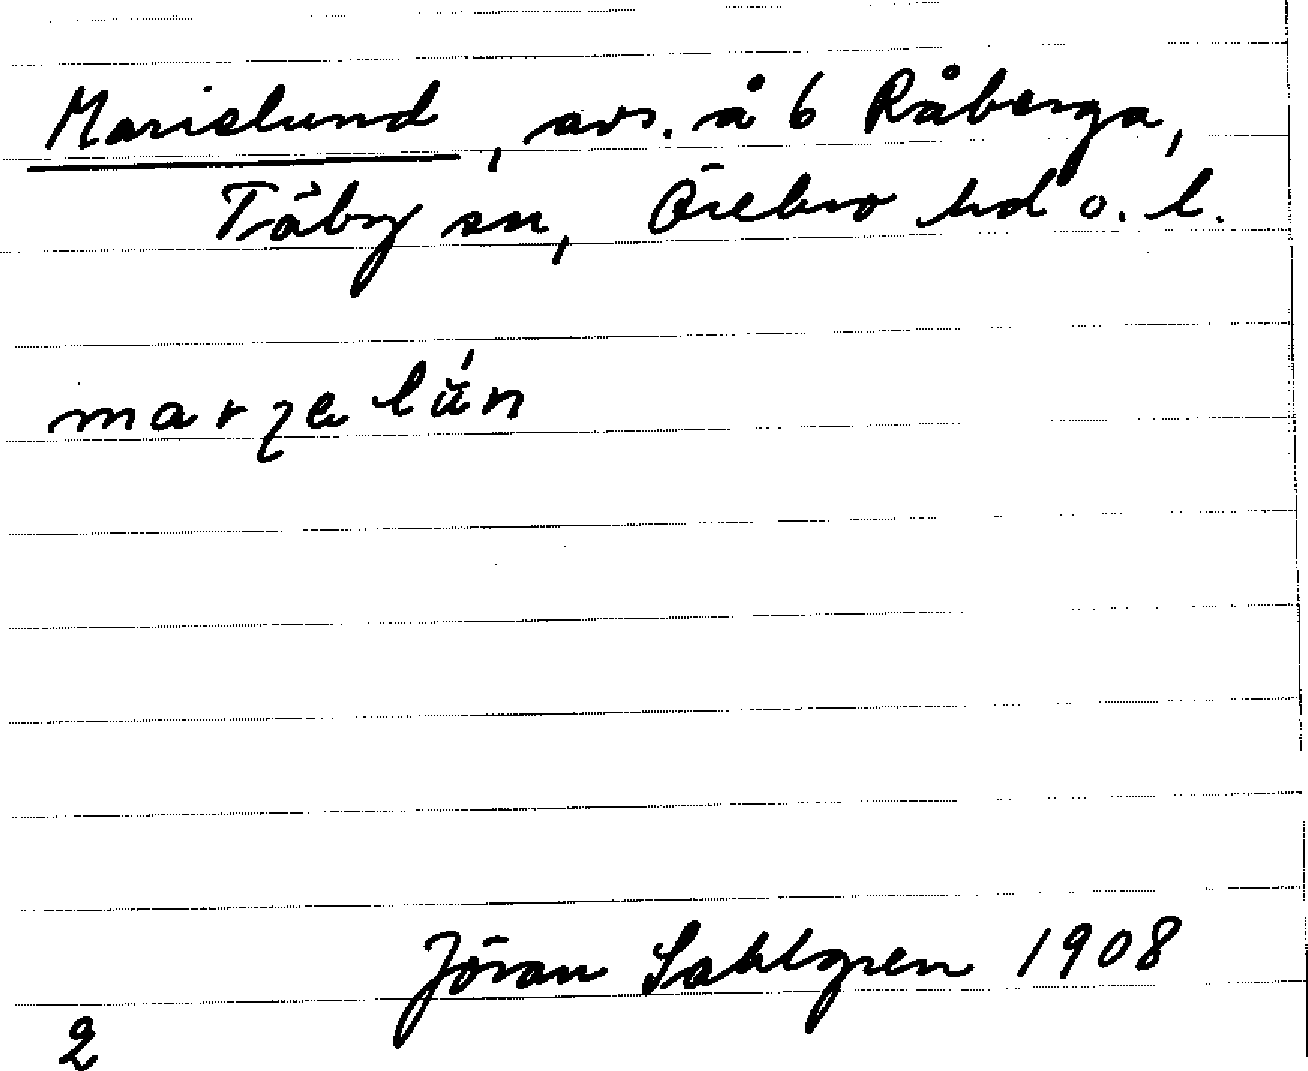 Marielund, avs. å 6 Råberga,
Täby sn, Örebro hd o. l.
marzelún
Jöran Sahlgren 1908
2